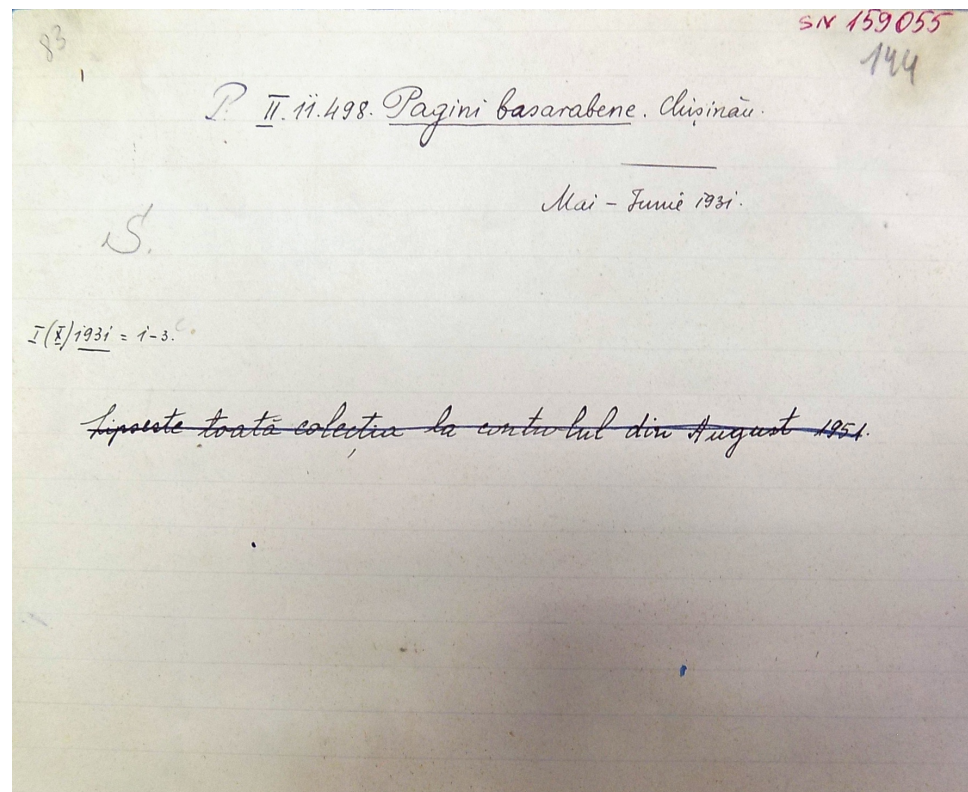 83
SN 159055
144
P. II. 11.498. Pagini basarabene. Chişinău.
Mai - Iunie 1931.
S.
I(X) 1931 = 1-3. C.
Lipseste toată colecția la controlul din August 1951.